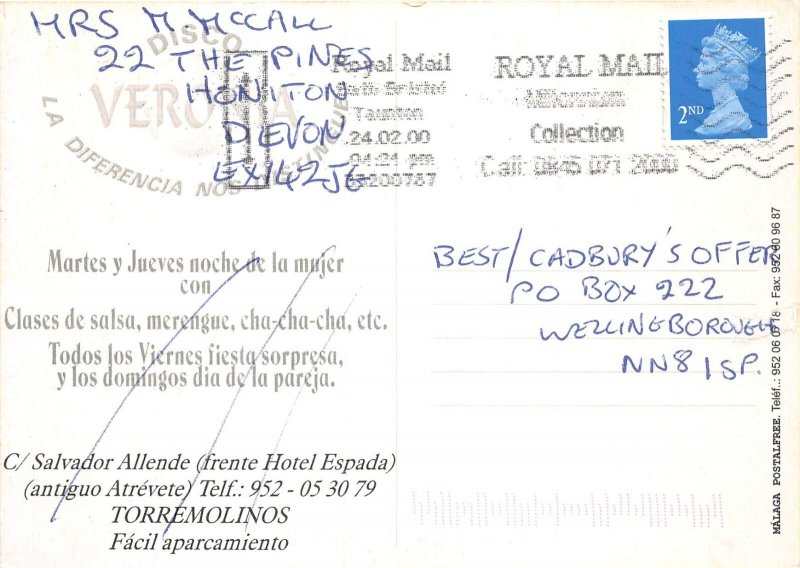 MRS M. MCCALL
22 THE PINES
HONITON
DEVON
EX14 2JE
DISCO
VERONA
LA DIFERENCIA NOS DISTINGUE
Royal Mail
Taunton
24.02.00
ROYAL MAIL
Collection
Call: 0845 071 2000
2ND
BEST/CADBURY'S OFFER
PO BOX 222
WELLINGBOROUGH
NN8 1SP.
Martes y Jueves noche de la mujer
con
Clases de salsa, merengue, cha-cha-cha, etc.
Todos los Viernes fiesta sorpresa,
y los domingos dia de la pareja.
C/ Salvador Allende (frente Hotel Espada)
(antiguo Atrévete) Telf.: 952 - 05 30 79
TORREMOLINOS
Fácil aparcamiento
MÁLAGA POSTALFREE. Teléf.: 952 06 07 18 - Fax: 952 60 96 87